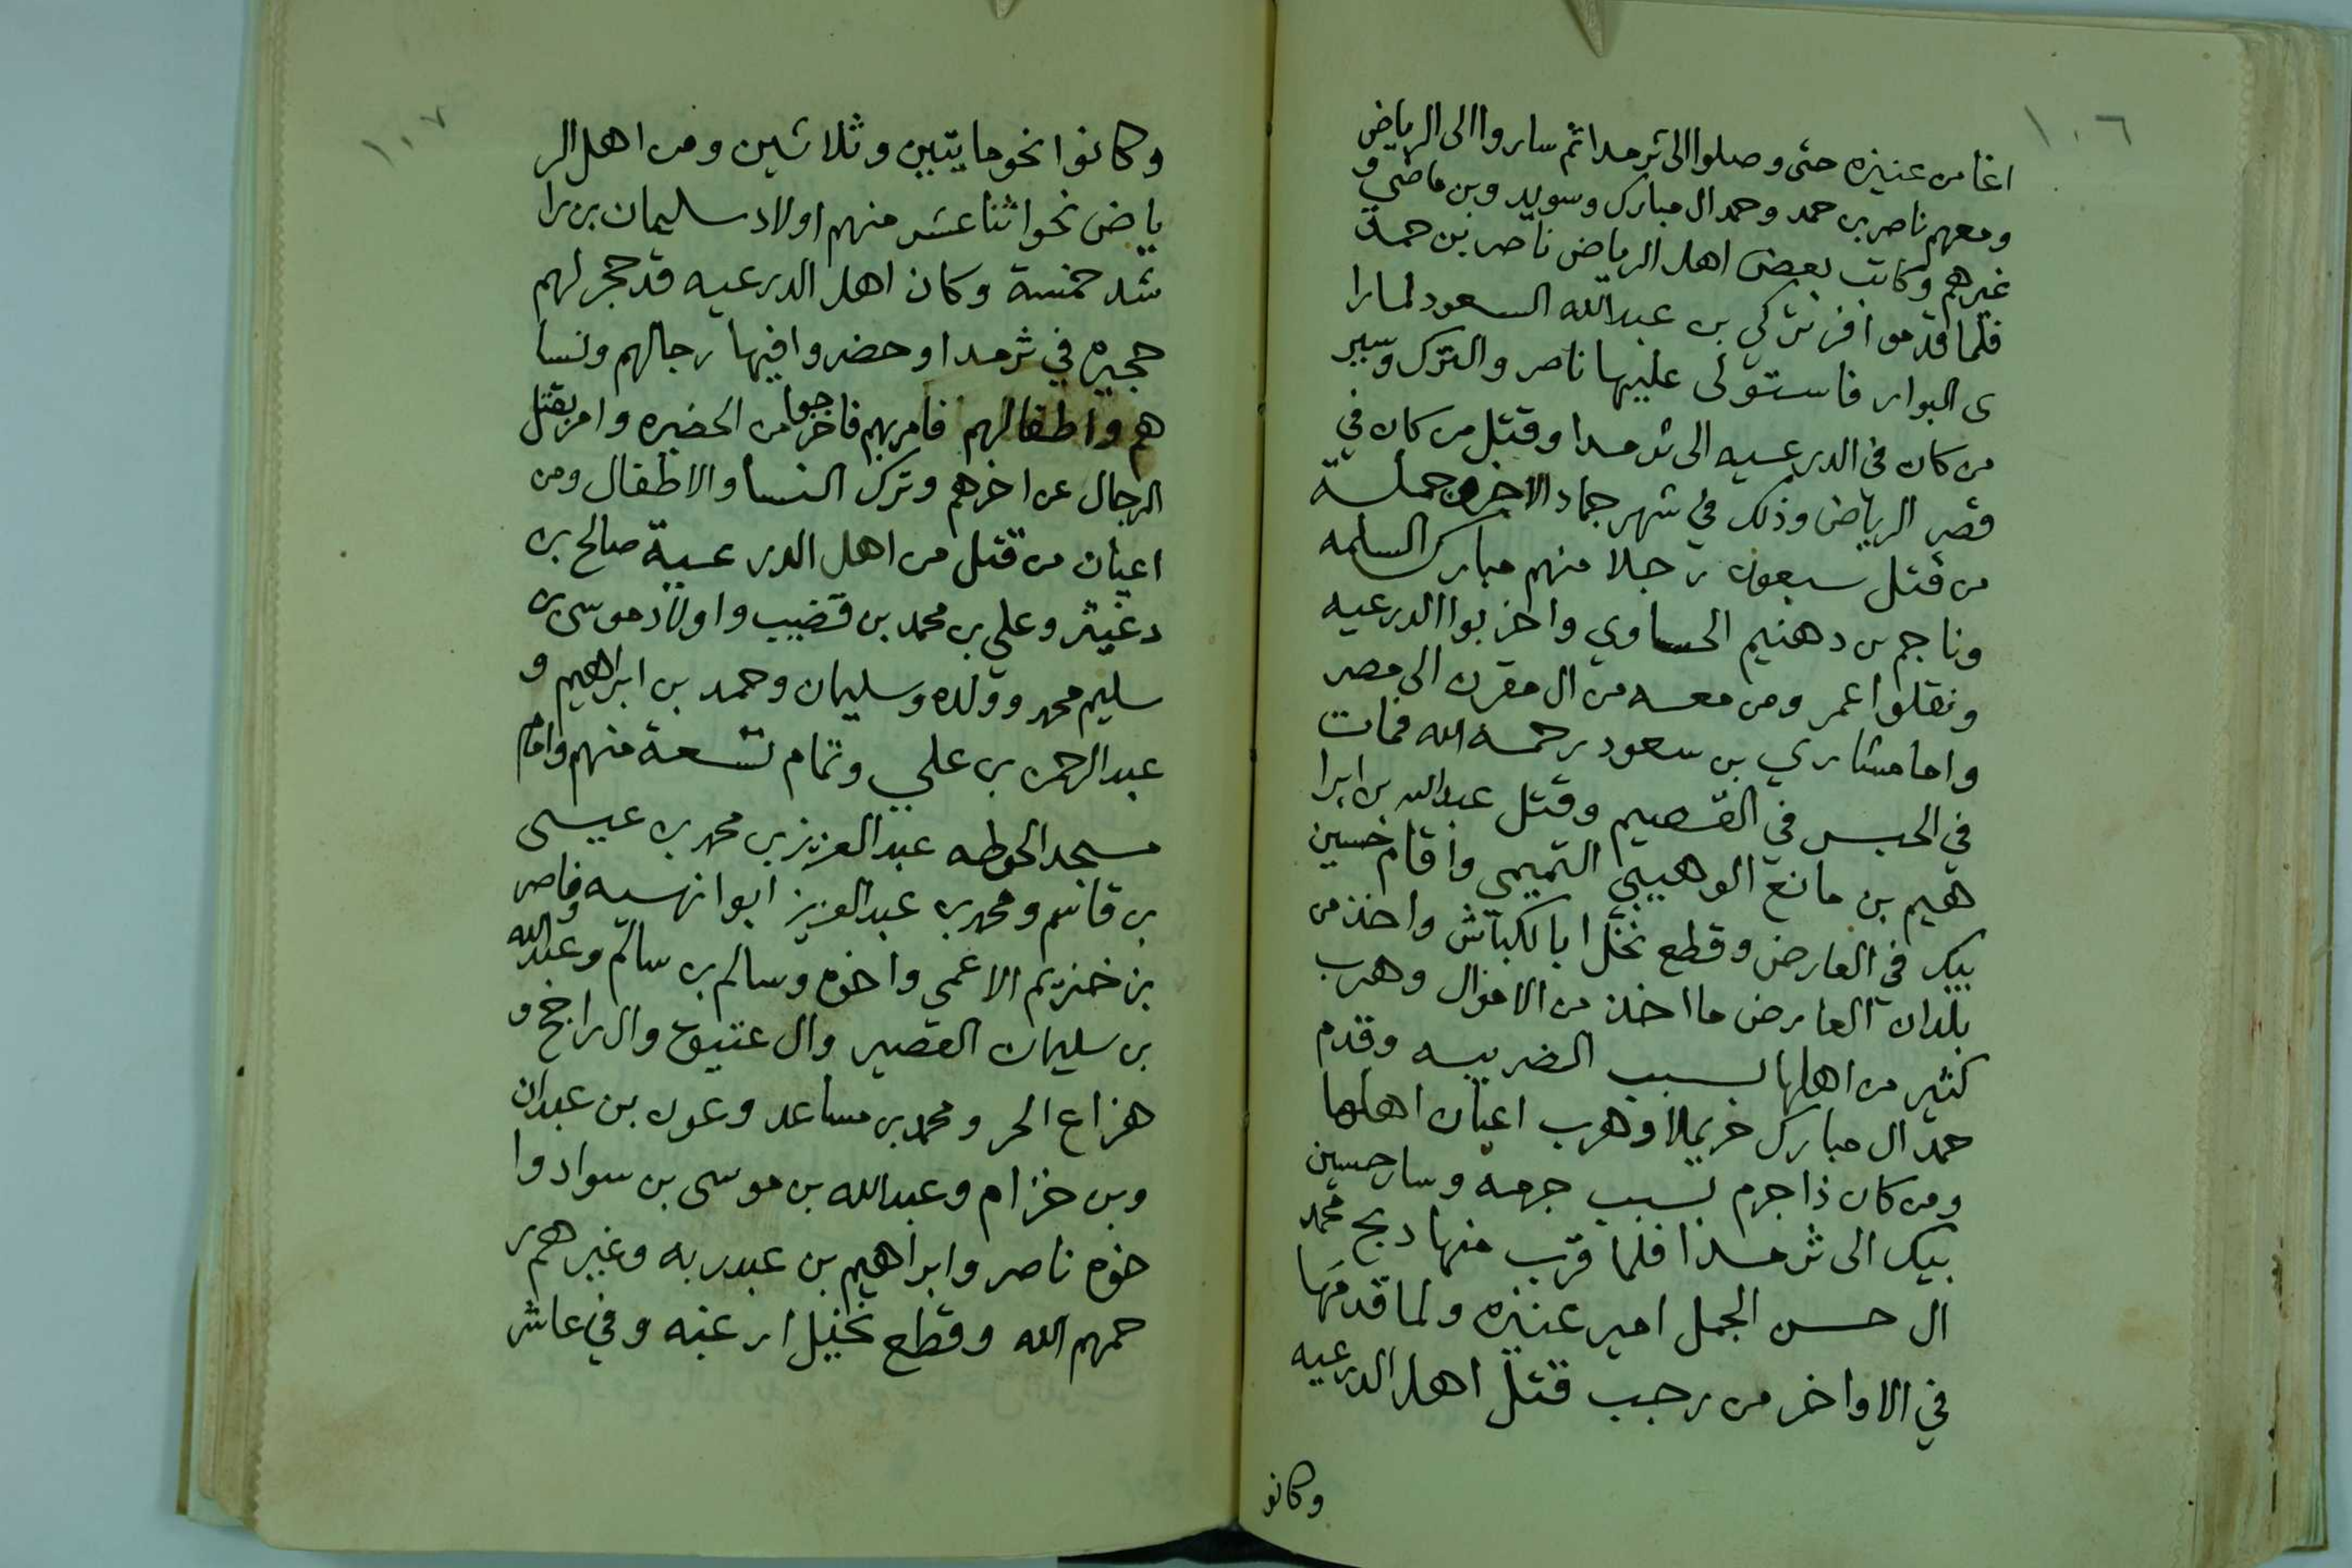 ١٠٦
اغا من عنيزه حتى وصلوا الى ثرمدا ثم ساروا الى الرياض
ومعهم ناصر بن حمد وحمد ال مبارك وسويد وبن ماضي و
غيرهم وكاتب بعض اهل الرياض ناصر بن حمد
فلما قدموا فز تركي بن عبدالله السعود لما را
ى البوار فاستولى عليها ناصر والترك وسير
من كان في الدرعيه الى ثرمدا وقتل من كان في
قصر الرياض وذلك في شهر جماد الاخر وجملة
من قتل سبعون رجلا منهم مبارك السلمه
وناجم بن دهنيم الحساوي واخربوا الدرعيه
ونقلوا عمر ومن معه من ال مقرن الى مصر
واما مشاري بن سعود رحمه الله فمات
في الحبس في القصيم وقتل عبدالله بن ابرا
هيم بن مانع الوهيبي التميمي واقام حسين
بيك في العارض وقطع نخل ابا لكباش واخذ من
بلدان العارض ما اخذ من الاموال وهرب
كثير من اهلها بسبب الضريبه وقدم
حمد ال مبارك حريملا وهرب اعيان اهلها
ومن كان ذا جرم بسبب جرمه وسار حسين
بيك الى ثرمدا فلما قرب منها ذبح محمد
ال حسن الجمل امير عنيزه ولما قدمها
في الاواخر من رجب قتل اهل الدرعيه
وكانو
١٠٧
وكانوا نحو مايتين وثلاثين ومن اهل الر
ياض نحو اثنا عشر منهم اولاد سليمان بن را
شد خمسة وكان اهل الدرعيه قد حجر لهم
حجيره في ثرمدا وحضروا فيها رجالهم ونسا
هم واطفالهم فامر بهم فاخرجوا من الحضيره وامر بقتل
الرجال عن اخرهم وترك النسا والاطفال ومن
اعيان من قتل من اهل الدرعية صالح بن
دغيثر وعلي بن محمد بن قضيب واولاد موسى بن
سليم محمد وولده وسليمان وحمد بن ابراهيم و
عبدالرحمن بن علي وتمام تسعة منهم وامام
مسجد الحوطه عبدالعزيز بن محمد بن عيسى
بن قاسم ومحمد بن عبدالعزيز ابوا نهيه وناصر
بن خنزيم الاعمى واخوه وسالم بن سالم وعبدالله
بن سليمان القصير وال عتيق وال راجح و
هزاع الحر ومحمد بن مساعد وعون بن عبدان
وبن خزام وعبدالله بن موسى بن سواد وا
خوه ناصر وابراهيم بن عبدربه وغيرهم ر
حمهم الله وقطع نخيل ارغبه وفي عاشر